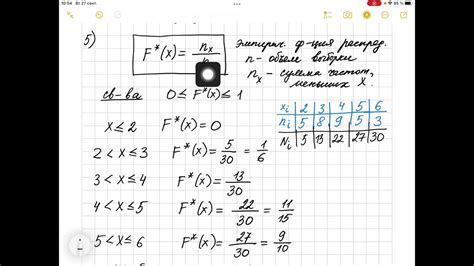 10:54 Вт 27 сент.
5) F*(x) = nₓ/n
Эмпирич. ф-ция распред.
n - объем выборки
nₓ - сумма частот,
меньших X.
св-ва 0 ≤ F*(x) ≤ 1
xᵢ | 2 | 3 | 4 | 5 | 6
nᵢ | 5 | 8 | 9 | 5 | 3
Nᵢ | 5 | 13 | 22 | 27 | 30
x ≤ 2 F*(x) = 0
2 < x ≤ 3 F*(x) = 5/30 = 1/6
3 < x ≤ 4 F*(x) = 13/30
4 < x ≤ 5 F*(x) = 22/30 = 11/15
5 < x ≤ 6 F*(x) = 27/30 = 9/10